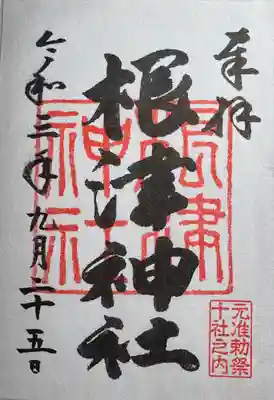 奉拝
根津神社
令和三年九月二十五日
根津
神社
元准勅祭
十社之内